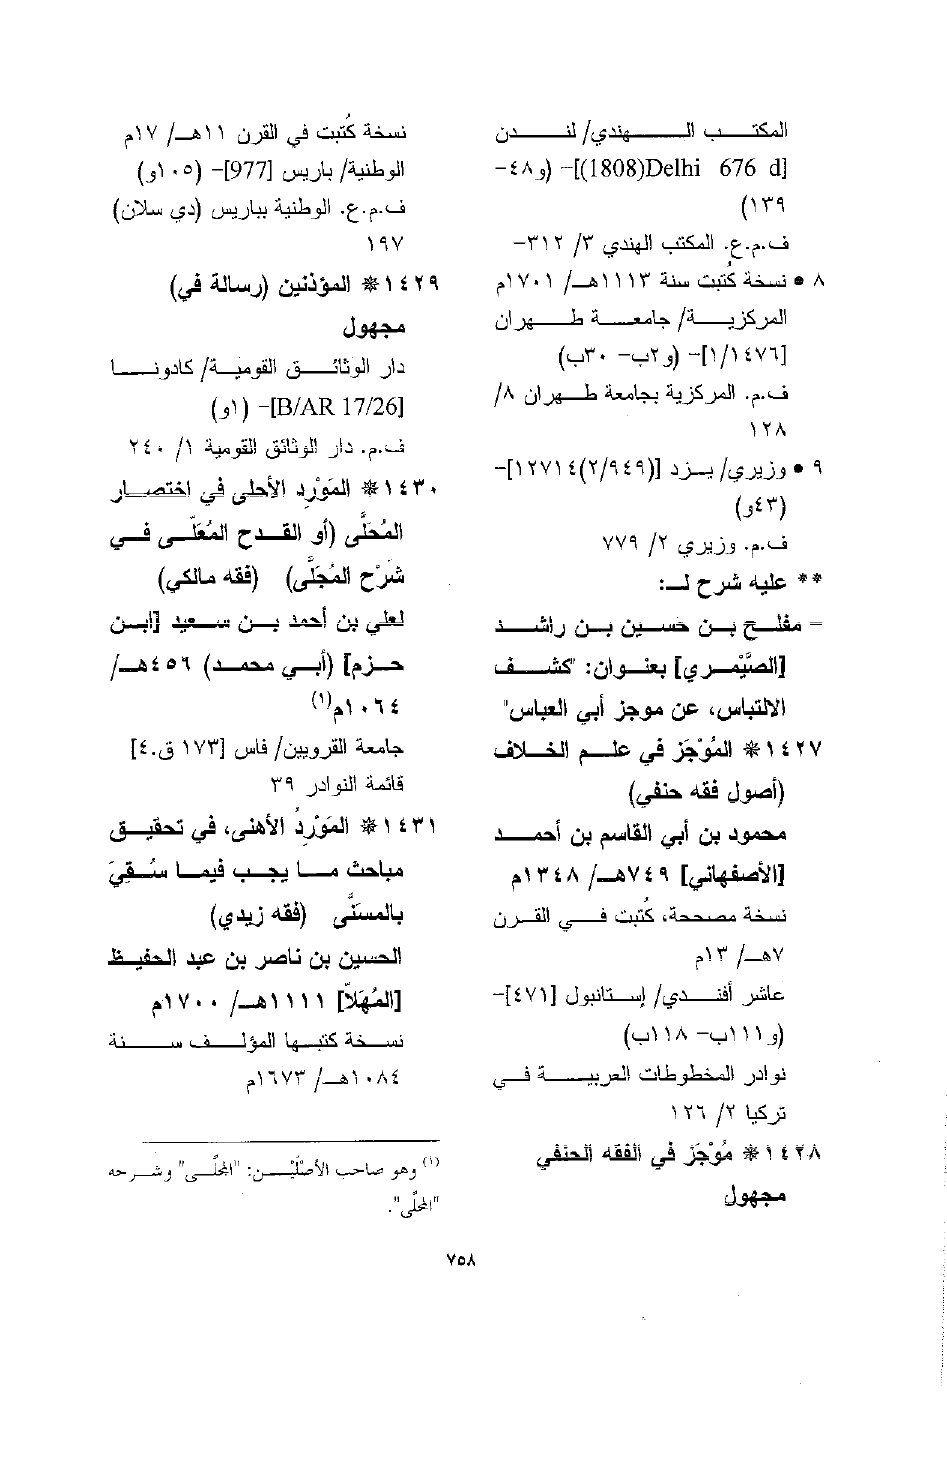 المكتب الهندي/ لندن
[Delhi 676 d(1808)]- (و٤٨-
١٣٩)
ف.م.ع. المكتب الهندي ٣/ ٣١٢-
٨ • نسخة كُتبت سنة ١١١٣هـ/ ١٧٠١م
المركزية/ جامعة طهران
[١/١٤٧٦]- (و٢ب- ٣٠ب)
ف.م. المركزية بجامعة طهران ٨/
١٢٨
٩ • وزيري/ يزد [(٢/٩٤٩)١٢٧١٤]-
(٤٣و)
ف.م. وزيري ٢/ ٧٧٩
** عليه شرح لـ:
= مفلح بن حسين بن راشد
[الصَّيْمري] بعنوان: "كشف
الالتباس، عن موجز أبي العباس"
١٤٢٧* المُوْجَز في علم الخلاف
(أصول فقه حنفي)
محمود بن أبي القاسم بن أحمد
[الأصفهاني] ٧٤٩هـ/ ١٣٤٨م
نسخة مصححة، كُتبت في القرن
٧هـ/ ١٣م
عاشر أفندي/ إستانبول [٤٧١]-
(و١١١ب- ١١٨ب)
نوادر المخطوطات العربية في
تركيا ٢/ ١٢٦
١٤٢٨* مُوْجَز في الفقه الحنفي
مجهول
نسخة كُتبت في القرن ١١هـ/ ١٧م
الوطنية/ باريس [977]- (١٠٥و)
ف.م.ع. الوطنية بباريس (دي سلان)
١٩٧
١٤٢٩* المؤذنين (رسالة في)
مجهول
دار الوثائق القومية/ كادونا
[B/AR 17/26]- (١و)
ف.م. دار الوثائق القومية ١/ ٢٤٠
١٤٣٠* المَوْرِد الأحلى في اختصار
المُحلَّى (أو القدح المُعَلَّى في
شَرْح المُجَلَّى) (فقه مالكي)
لعلي بن أحمد بن سعيد [ابن
حزم] (أبي محمد) ٤٥٦هـ/
١٠٦٤م(١)
جامعة القرويين/ فاس [١٧٣ ق.٤]
قائمة النوادر ٣٩
١٤٣١* المَوْرِدُ الأهنى، في تحقيق
مباحث ما يجب فيما سُقيَ
بالمسنَّى (فقه زيدي)
الحسين بن ناصر بن عبد الحفيظ
[المُهَلاّ] ١١١١هـ/ ١٧٠٠م
نسخة كتبها المؤلف سنة
١٠٨٤هـ/ ١٦٧٣م
(١) وهو صاحب الأصْلَيْن: "المجلَّى" وشرحه
"المحلَّى".
٧٥٨